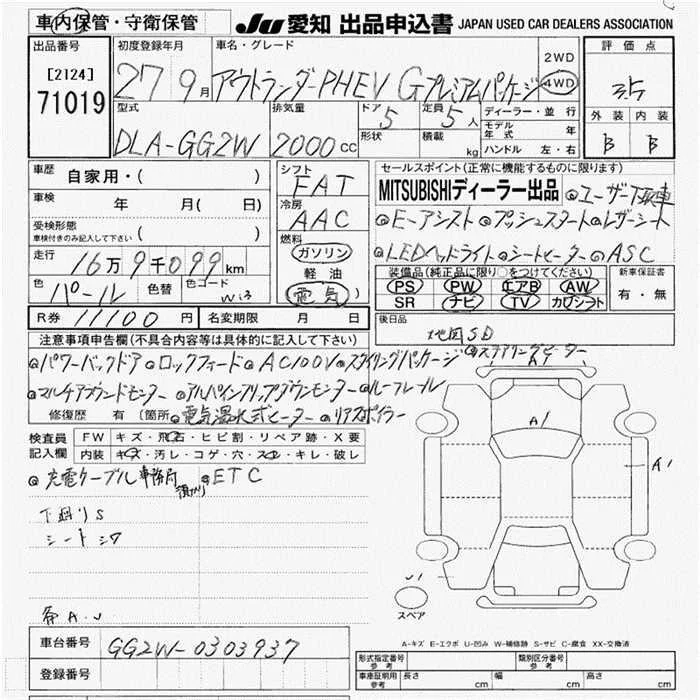 車内保管・守衛保管
JU 愛知 出品申込書 JAPAN USED CAR DEALERS ASSOCIATION
出品番号
[2124]
71019
初度登録年月
27 9月
車名・グレード
アウトランダーPHEV Gプレミアムパッケージ
2WD
4WD
評価点
3.5
外装 内装
B B
型式
DLA-GG2W
排気量
2000cc
ドア 5
形状
定員 5人
積載 kg
ディーラー・並行
モデル年式 年
ハンドル 左・右
車歴
自家用・( )
車検 年 月( 日)
受検形態
車検付きのみ記入して下さい ( )
走行
16万9千099km
色
パール
色替
色コード
W13
シフト
FAT
冷房
AAC
燃料
ガソリン
軽油
電気
セールスポイント(正常に機能するものに限ります)
MITSUBISHIディーラー出品 ◎ユーザー下取車
◎E-アシスト ◎プッシュスタート ◎レザーシート
◎LEDヘッドライト ◎シートヒーター ◎ASC
装備品(純正品に限り○をつけてください)
PS PW エアB AW
SR ナビ TV カワシフト
新車保証書
有・無
R券 11100円
名変期限 月 日
後日品
地図SD
注意事項申告欄(不具合内容等は具体的に記入して下さい)
◎ステアリングヒーター
◎パワーバックドア ◎ロックフォード ◎AC100V ◎スタイリングパッケージ
◎マルチアラウンドモニター ◎アルパインフリップダウンモニター ◎ルーフレール
修復歴 有 (箇所 ◎電気温水式ヒーター ◎リアスポイラー
検査員記入欄
FW キズ・飛石・ヒビ割・リペア跡・X要
内装 キズ・汚レ・コゲ・穴・スレ・キレ・破レ
◎充電ケーブル事務局預かり ◎ETC
下廻りS
A1
A1
A1
スペア
A-キズ E-エクボ U-凹み W-補修跡 S-サビ C-腐食 XX-交換済
車台番号
GG2W-0303937
登録番号
形式指定番号 参考
類別区分番号 参考
車庫証明用 参考 長さ cm 幅 cm 高さ cm